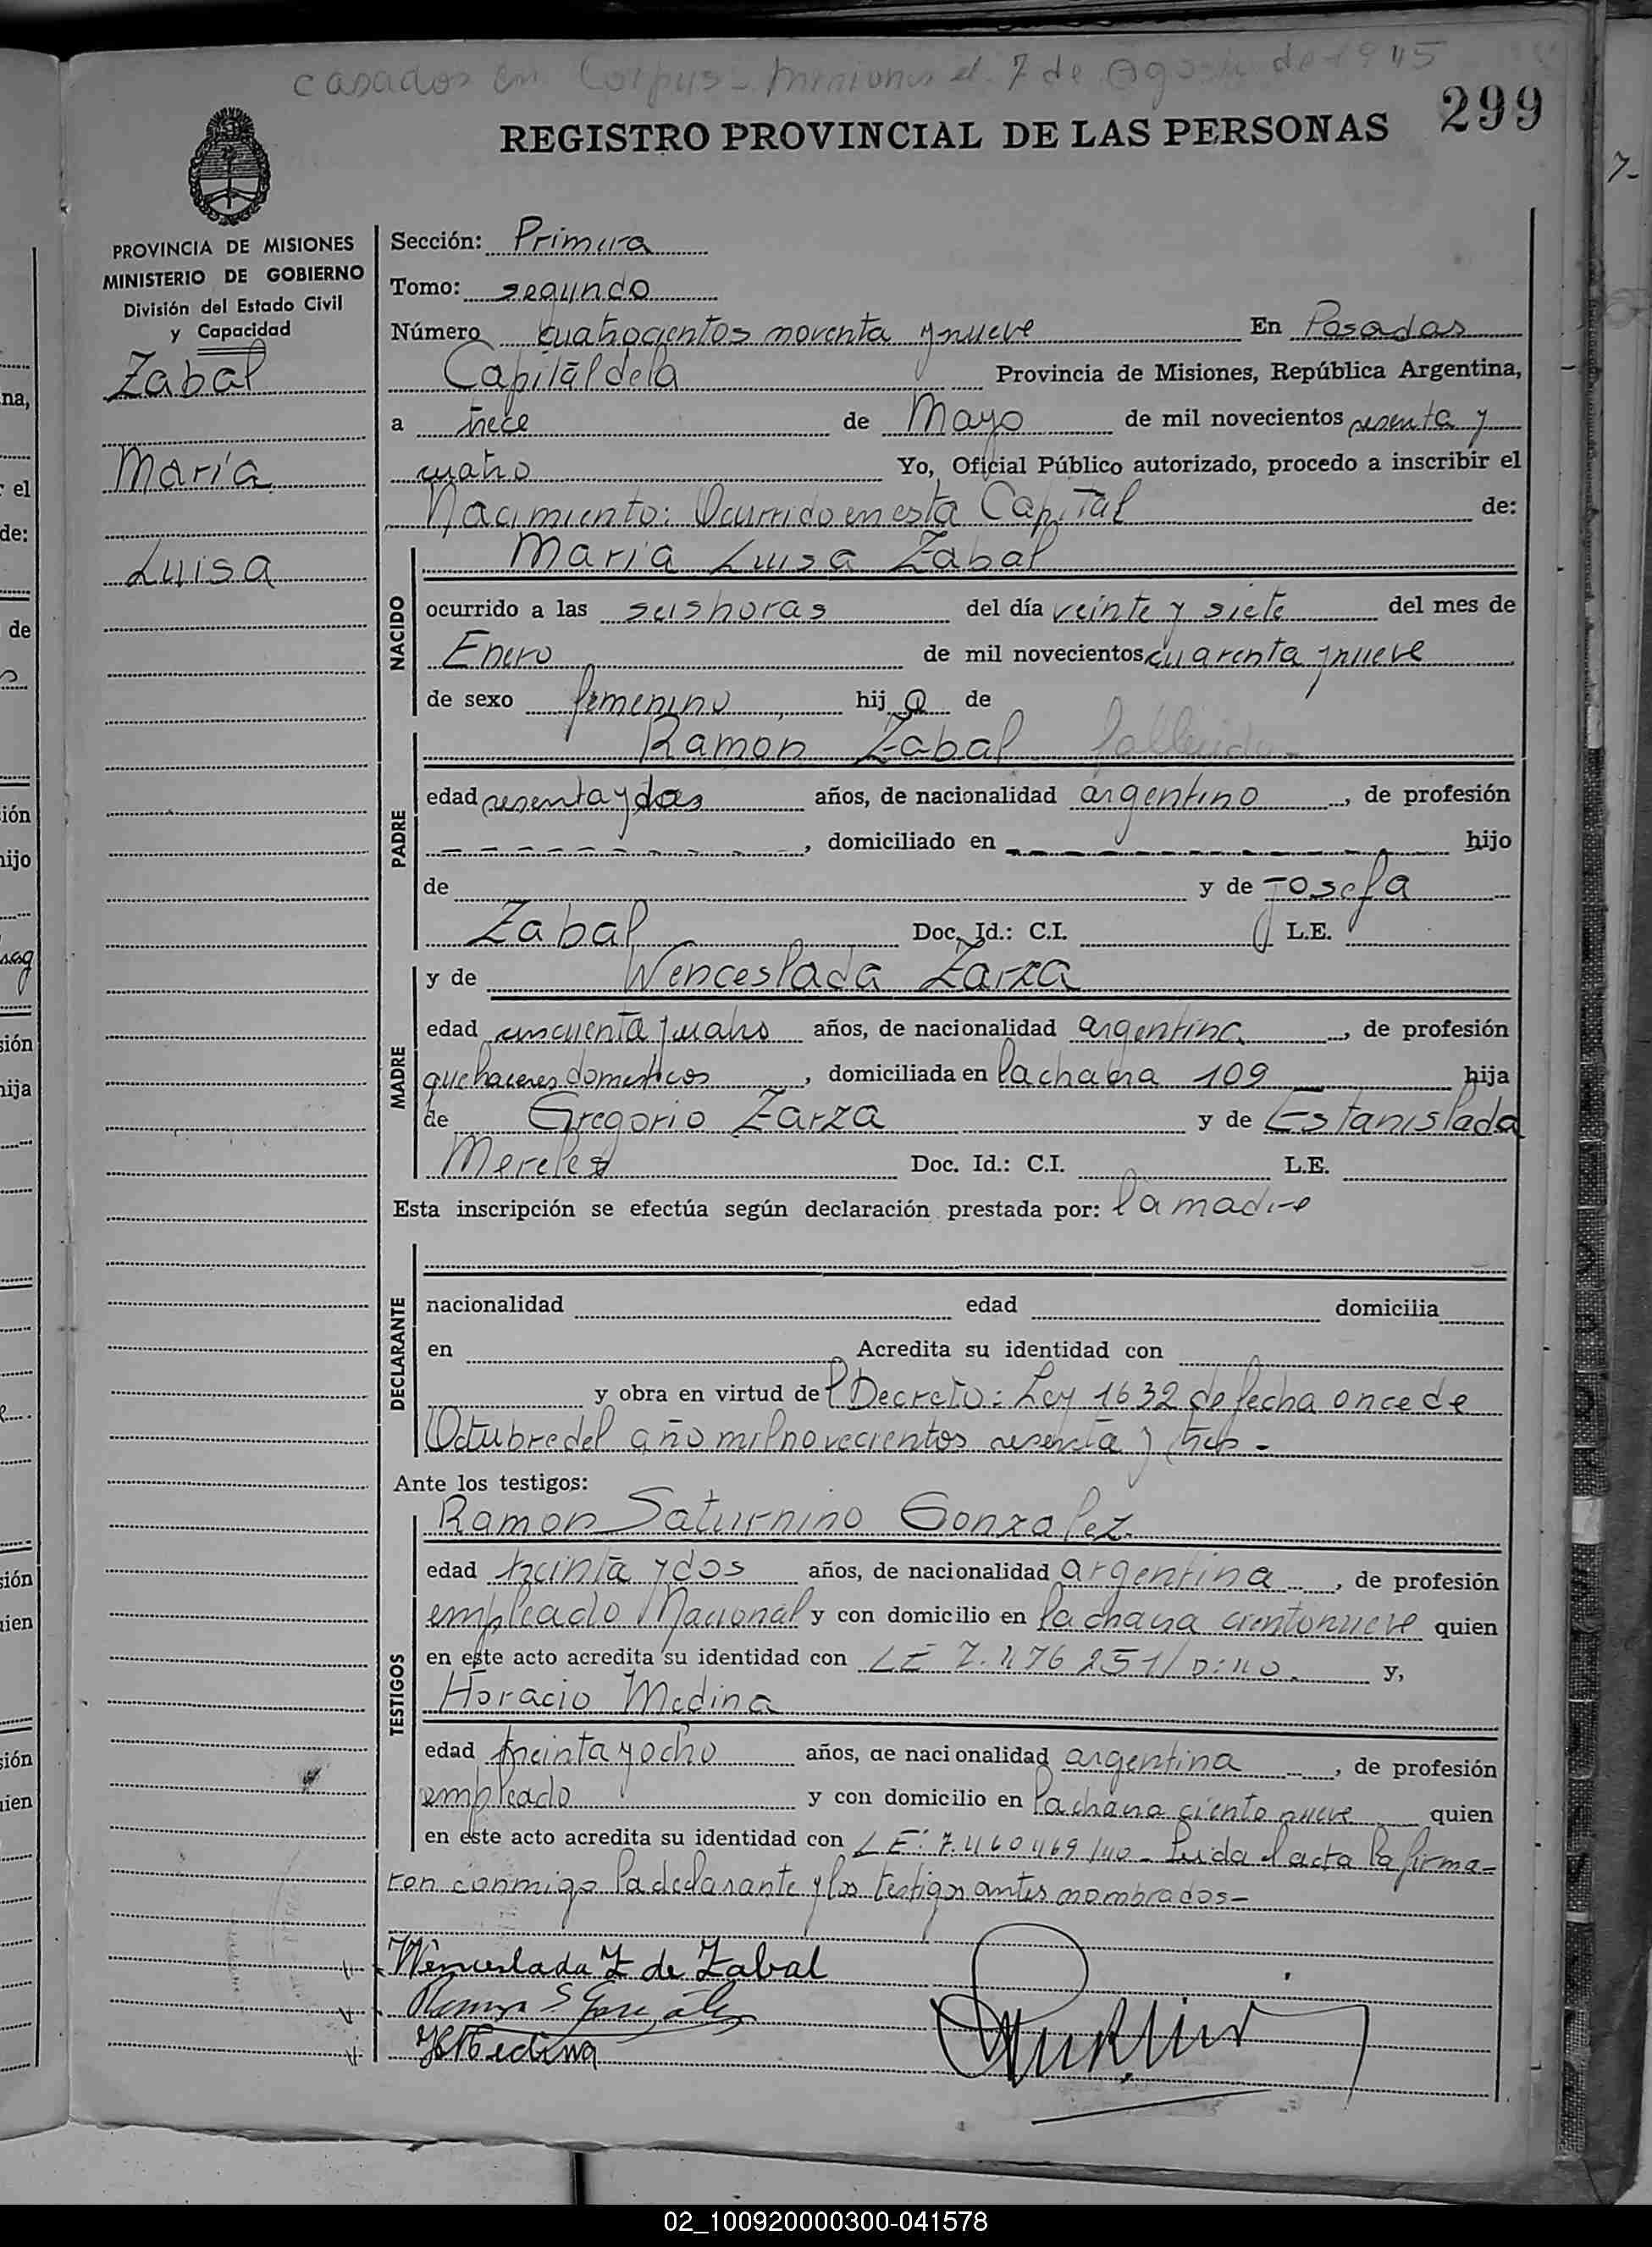 casados en Corpus - Misiones el 7 de Agosto de 1945
299
REGISTRO PROVINCIAL DE LAS PERSONAS
PROVINCIA DE MISIONES
MINISTERIO DE GOBIERNO
División del Estado Civil
y Capacidad
Zabal
María
Luisa
Sección: Primera
Tomo: segundo
Número cuatrocientos noventa y nueve En Posadas
Capital de la Provincia de Misiones, República Argentina,
a trece de Mayo de mil novecientos sesenta y
cuatro Yo, Oficial Público autorizado, procedo a inscribir el
Nacimiento: Ocurrido en esta Capital de:
María Luisa Zabal
NACIDO
ocurrido a las seis horas del día veinte y siete del mes de
Enero de mil novecientos cuarenta y nueve
de sexo femenino hija de
Ramon Zabal fallecido -
PADRE
edad sesenta y dos años, de nacionalidad argentino, de profesión
- - - - - - - - - , domiciliado en - - - - - - - - - hijo
de y de Josefa
Zabal Doc. Id.: C.I. L.E.
y de Wenceslada Zarza
MADRE
edad cincuenta y cuatro años, de nacionalidad argentina, de profesión
quehaceres domesticos, domiciliada en la chacra 109 hija
de Gregorio Zarza y de Estanislada
Mereles Doc. Id.: C.I. L.E.
Esta inscripción se efectúa según declaración prestada por: la madre
DECLARANTE
nacionalidad edad domicilia
en Acredita su identidad con
y obra en virtud del Decreto: Ley 1632 de fecha once de
Octubre del año mil novecientos sesenta y tres -
Ante los testigos:
Ramon Saturnino Gonzalez
TESTIGOS
edad treinta y dos años, de nacionalidad argentina, de profesión
empleado Nacional y con domicilio en la chacra ciento nueve quien
en este acto acredita su identidad con LE 7.476 251/ y,
Horacio Medina
edad treinta y ocho años, de nacionalidad argentina, de profesión
empleado y con domicilio en la chacra ciento nueve quien
en este acto acredita su identidad con LE: 7.460469/40 - Leida el acta la firma-
ron conmigo la declarante y los testigos antes nombrados -
Wenceslada Z de Zabal
Ramon S Gonzalez
H Medina
02_100920000300-041578